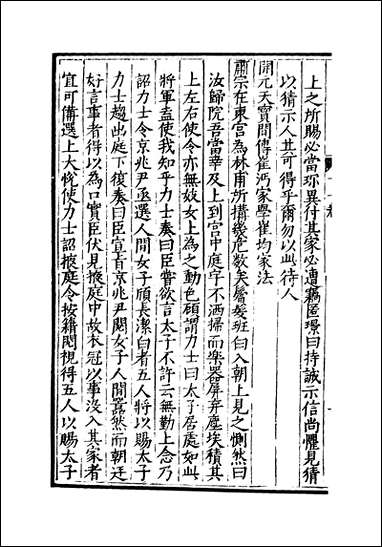 上之所賜必當珎異付其家必遭竊匿璟曰持誠示信尚懼見猜
以猜示人其可得乎爾勿以此待人
開元天寶間傳崔沔家學崔均家法
肅宗在東宮為林甫所搆幾危數矣鬢髮班白入朝上見之惻然曰
汝歸院吾當幸及上到宮中庭宇不洒掃而樂器屏弃塵埃積其
上左右使令亦無妓女上為之動色顧謂力士曰太子居處如此
將軍盍使我知乎力士奏曰臣嘗欲言太子不許云無勤上念乃
詔力士令京兆尹亟選人間女子頎長潔白者五人將以賜太子
力士趨出庭下復奏曰臣宣旨京兆尹閱女子人間囂然而朝廷
好言事者得以為口實臣伏見掖庭中故衣冠以事沒入其家者
宜可備選上大悅使力士詔掖庭令按籍閱視得五人以賜太子